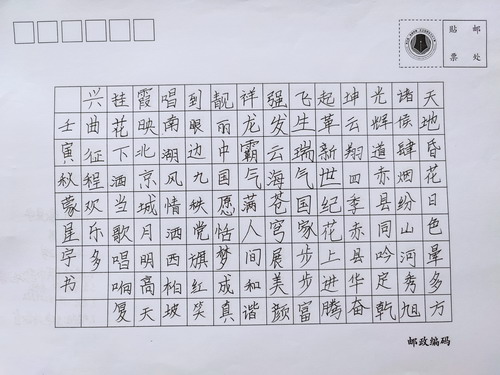 贴邮
票处
天地昏花日色晕多方
诸侯肆烟纷山河秀旭
光辉道赤县同吟定乾
坤云翔四季赤县华奋
起革新世纪花上进腾
飞生瑞气国家步步富
强发云海苍穹展美颜
祥龙霸气满人间和谐
靓丽中国愿恬梦成真
到眼边九秩党旗红笑
唱南湖风情洒西柏坡
霞映北京城月明高天
挂花下酒当歌唱响复
兴曲征程欢乐多
壬寅秋蒙星宇书
邮政编码